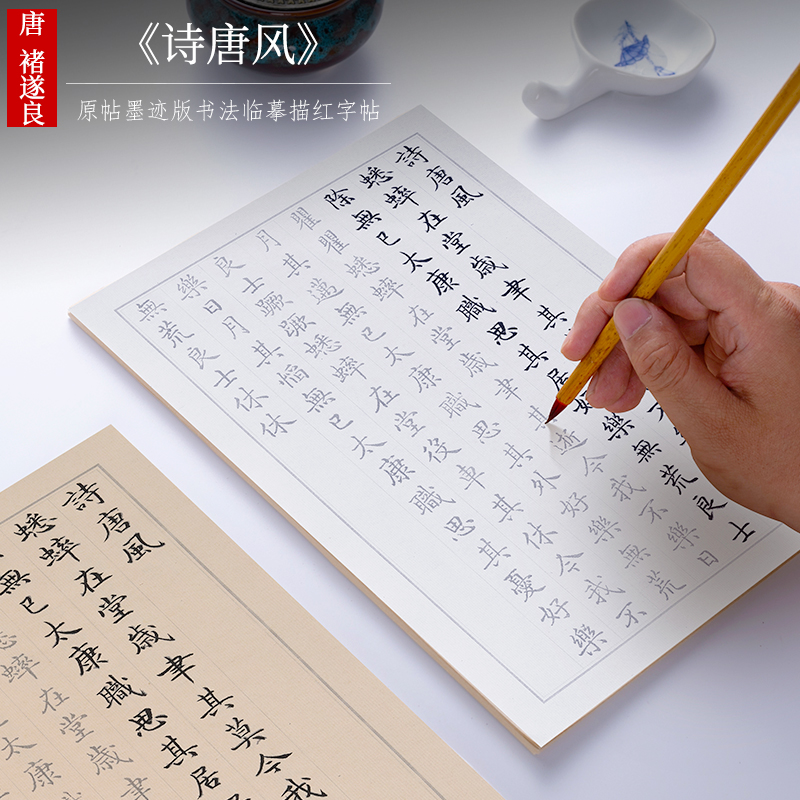 唐 褚遂良
《诗唐风》
原帖墨迹版书法临摹描红字帖
詩唐風
蟋蟀在堂歲聿其
除無已太康職思其居好樂無荒良士
瞿瞿蟋蟀在堂歲聿其逝今我不樂日
月其邁無已太康職思其外好樂無荒
良士蹶蹶蟋蟀在堂役車其休今我不
樂日月其慆無已太康職思其憂好樂
無荒良士休休
詩唐風
蟋蟀在堂歲聿其莫今我
無已太康職思其居
蟀在堂歲聿
太康